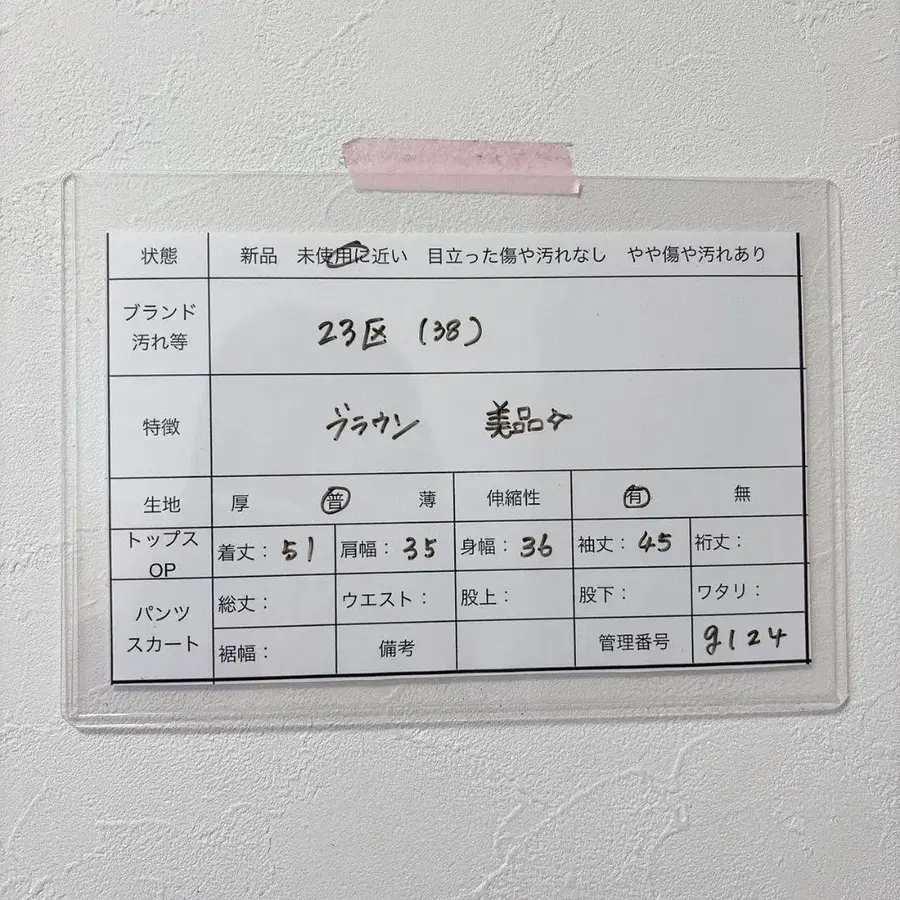 状態 新品 未使用に近い 目立った傷や汚れなし やや傷や汚れあり
ブランド
汚れ等
23区 (38)
特徴 ブラウン 美品☆
生地 厚 普 薄 伸縮性 有 無
トップス
OP
着丈：51 肩幅：35 身幅：36 袖丈：45 裄丈：
パンツ
スカート
総丈： ウエスト： 股上： 股下： ワタリ：
裾幅： 備考 管理番号 g124